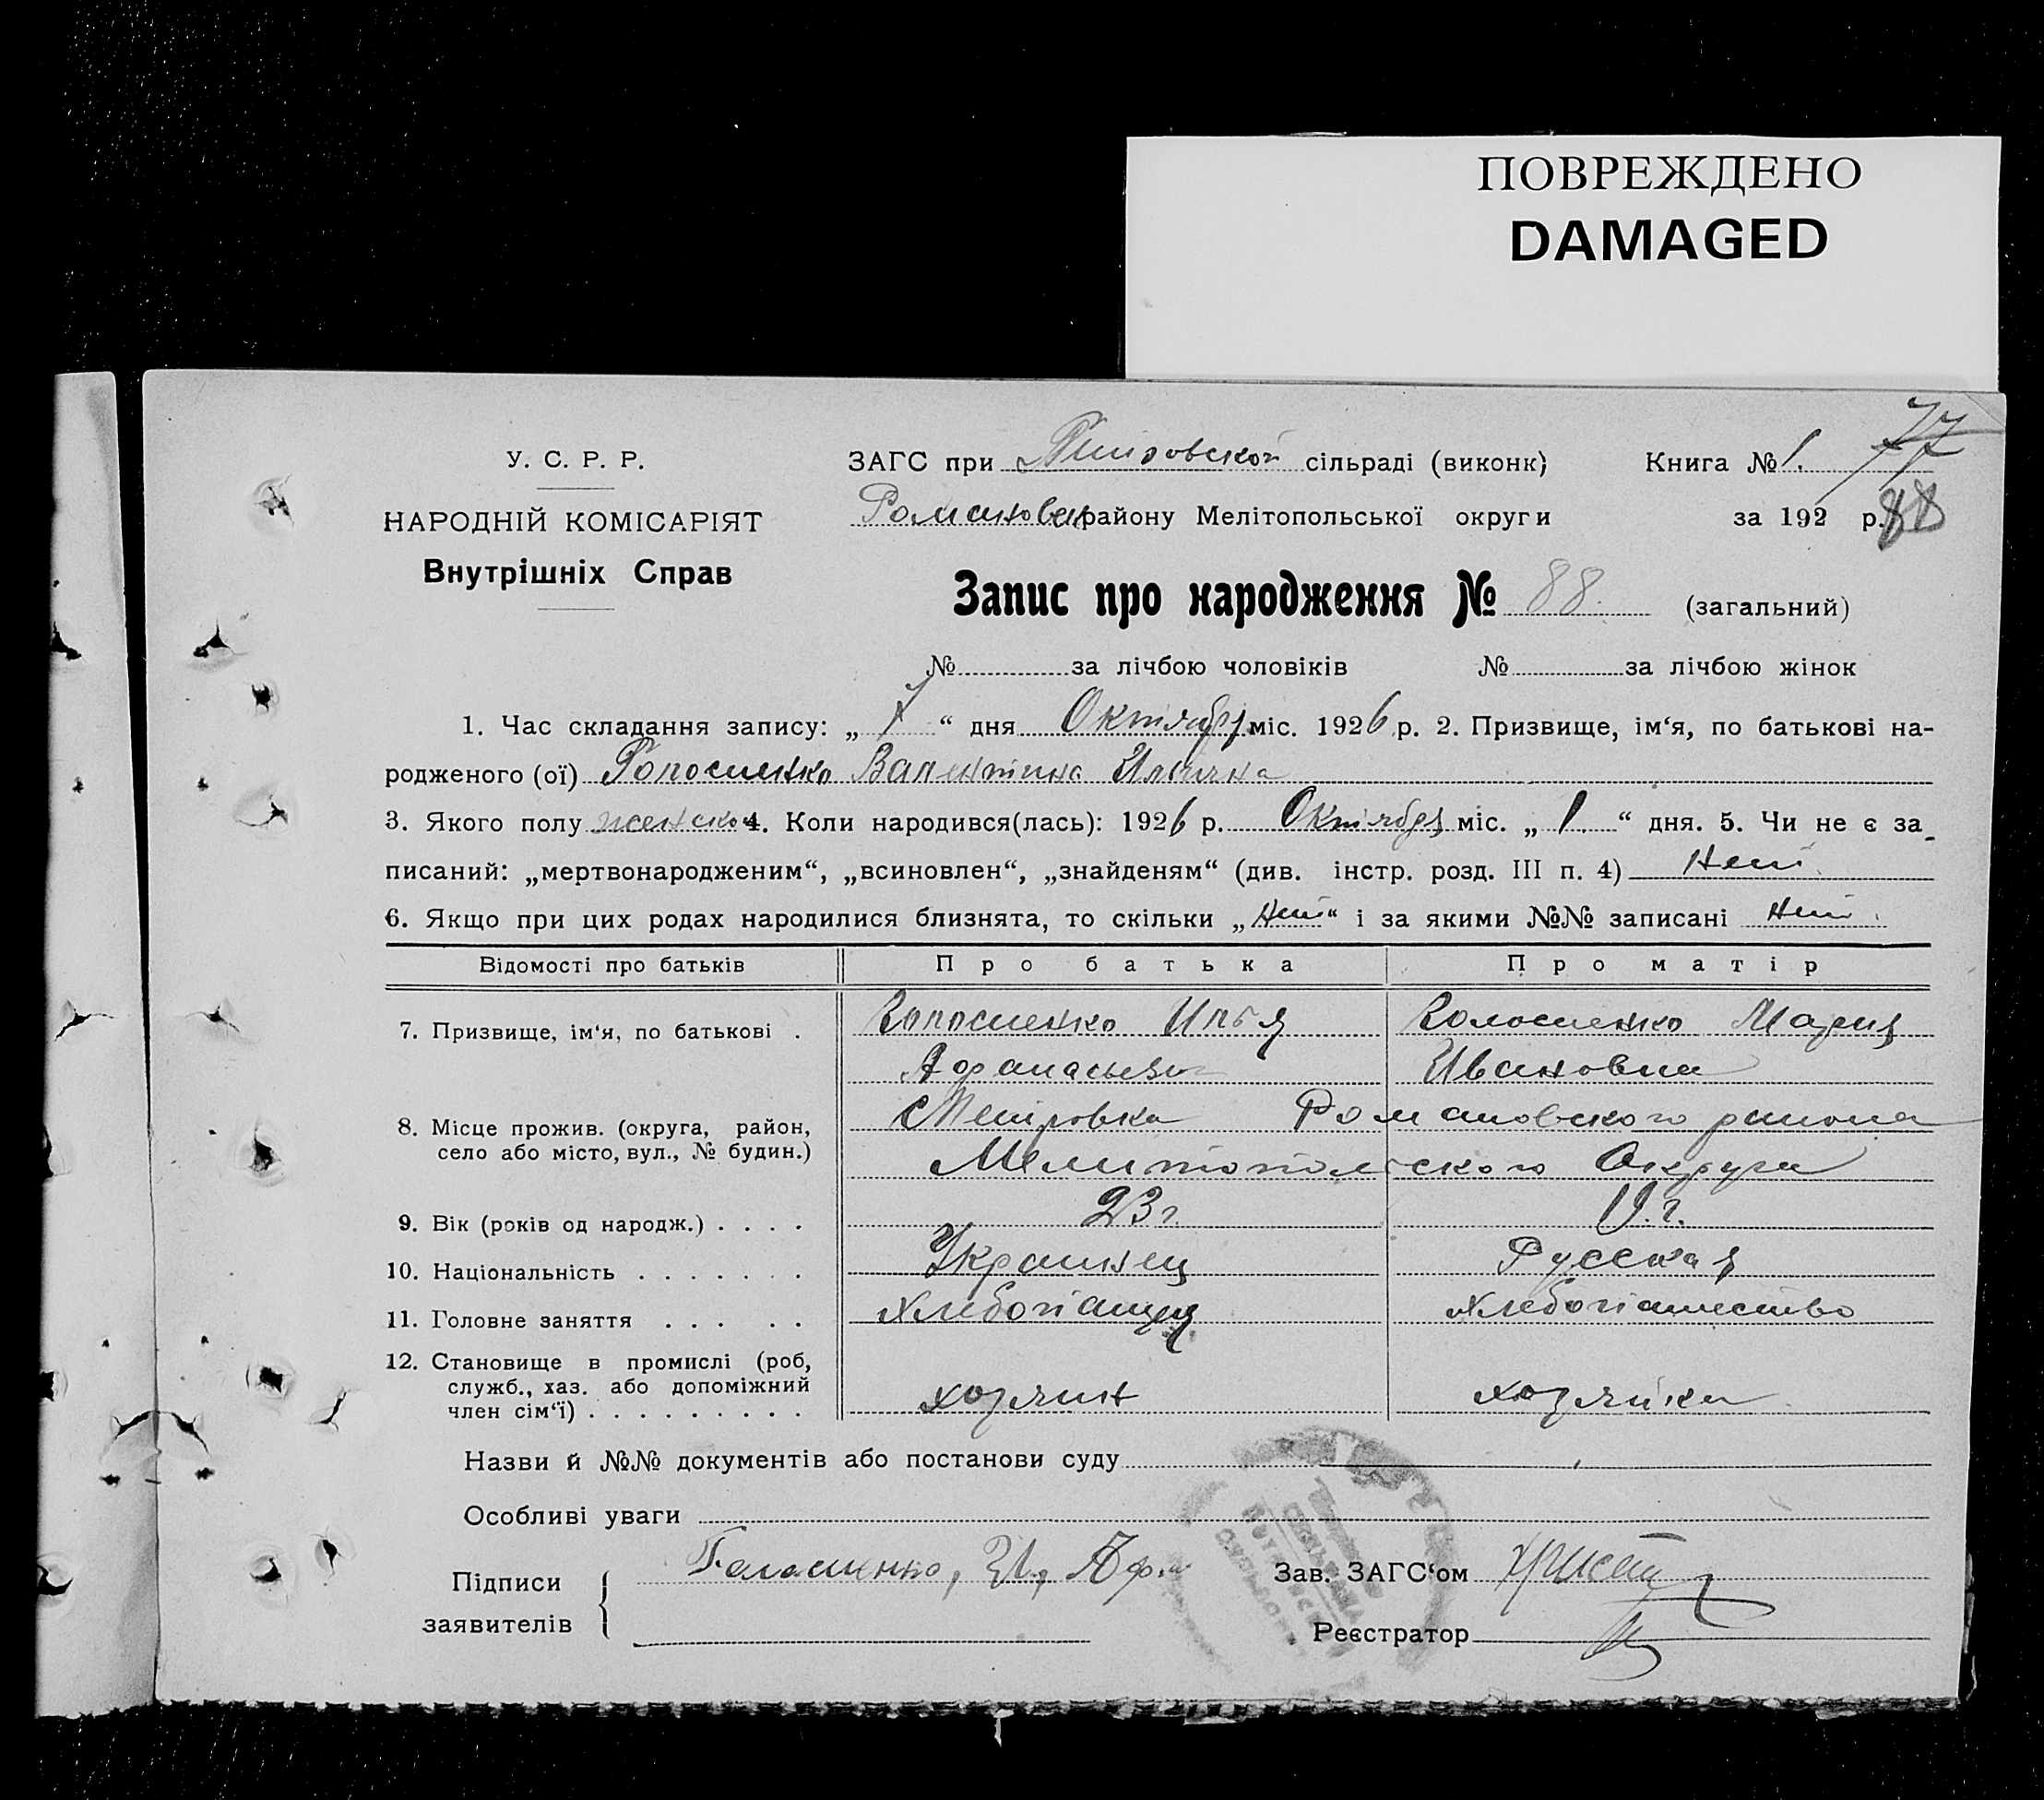 ПОВРЕЖДЕНО
DAMAGED
77
У. С. Р. Р.
ЗАГС при сільраді (виконк)
Книга № 1.
НАРОДНІЙ КОМІСАРІЯТ
Романовск району Мелітопольської округи
за 192 р. 88
Внутрішніх Справ
Запис про народження № 88. (загальний)
№ за лічбою чоловіків № за лічбою жінок
1. Час складання запису: „ 7 “ дня Октября міс. 1926 р. 2. Призвище, ім‘я, по батькові на-
родженого (ої) Валентина Ильична
3. Якого полу женскої 4. Коли народився(лась): 1926 р. Октября міс. „ 1. “ дня. 5. Чи не є за-
писаний: „мертвонародженим“, „всиновлен“, „знайденям“ (див. інстр. розд. III п. 4) Нет
6. Якщо при цих родах народилися близнята, то скільки „Нет“ і за якими №№ записані Нет.
Відомості про батьків Про батька Про матір
7. Призвище, ім‘я, по батькові . Волосненко Илья Волосненко Мария
Афанасьевич Ивановна
8. Місце прожив. (округа, район, Романовского района
село або місто, вул., № будин.) Мелитопольского Округа
9. Вік (років од народж.) . . . . 23 г. 19. г.
10. Національність . . . . . . . Украинец Русская
11. Головне заняття . . . . . Хлебопашец Хлебопашество
12. Становище в промислі (роб,
служб., хаз. або допоміжний хозяин хозяйка
член сім‘ї) . . . . . . . . .
Назви й №№ документів або постанови суду
Особливі уваги
Підписи
заявителів
Зав. ЗАГС‘ом
Реєстратор